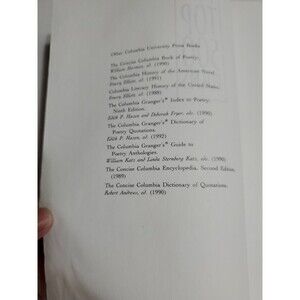 Other Columbia University Press Books
The Concise Columbia Book of Poetry.
William Harmon, ed. (1990)
The Columbia History of the American Novel.
Emory Elliott, ed. (1991)
Columbia Literary History of the United States.
Emory Elliott, ed. (1988)
The Columbia Granger's® Index to Poetry.
Ninth Edition.
Edith P. Hazen and Deborah Fryer, eds. (1990)
The Columbia Granger's® Dictionary of
Poetry Quotations.
Edith P. Hazen, ed. (1992)
The Columbia Granger's® Guide to
Poetry Anthologies.
William Katz and Linda Sternberg Katz, eds. (1990)
The Concise Columbia Encyclopedia, Second Edition.
(1989)
The Concise Columbia Dictionary of Quotations.
Robert Andrews, ed. (1990)